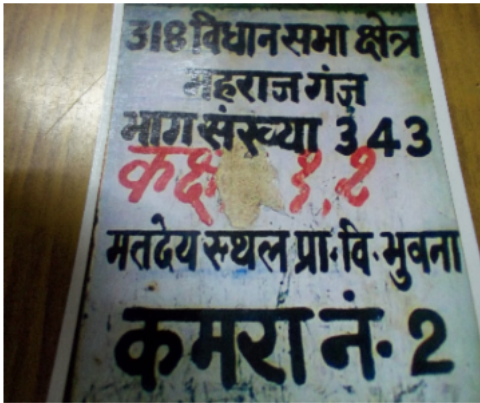 318 विधान सभा क्षेत्र
महराज गंज
भाग संख्या 343
कक्ष १,२
मतदेय स्थल प्रा॰ वि॰ भुवना
कमरा नं॰ 2